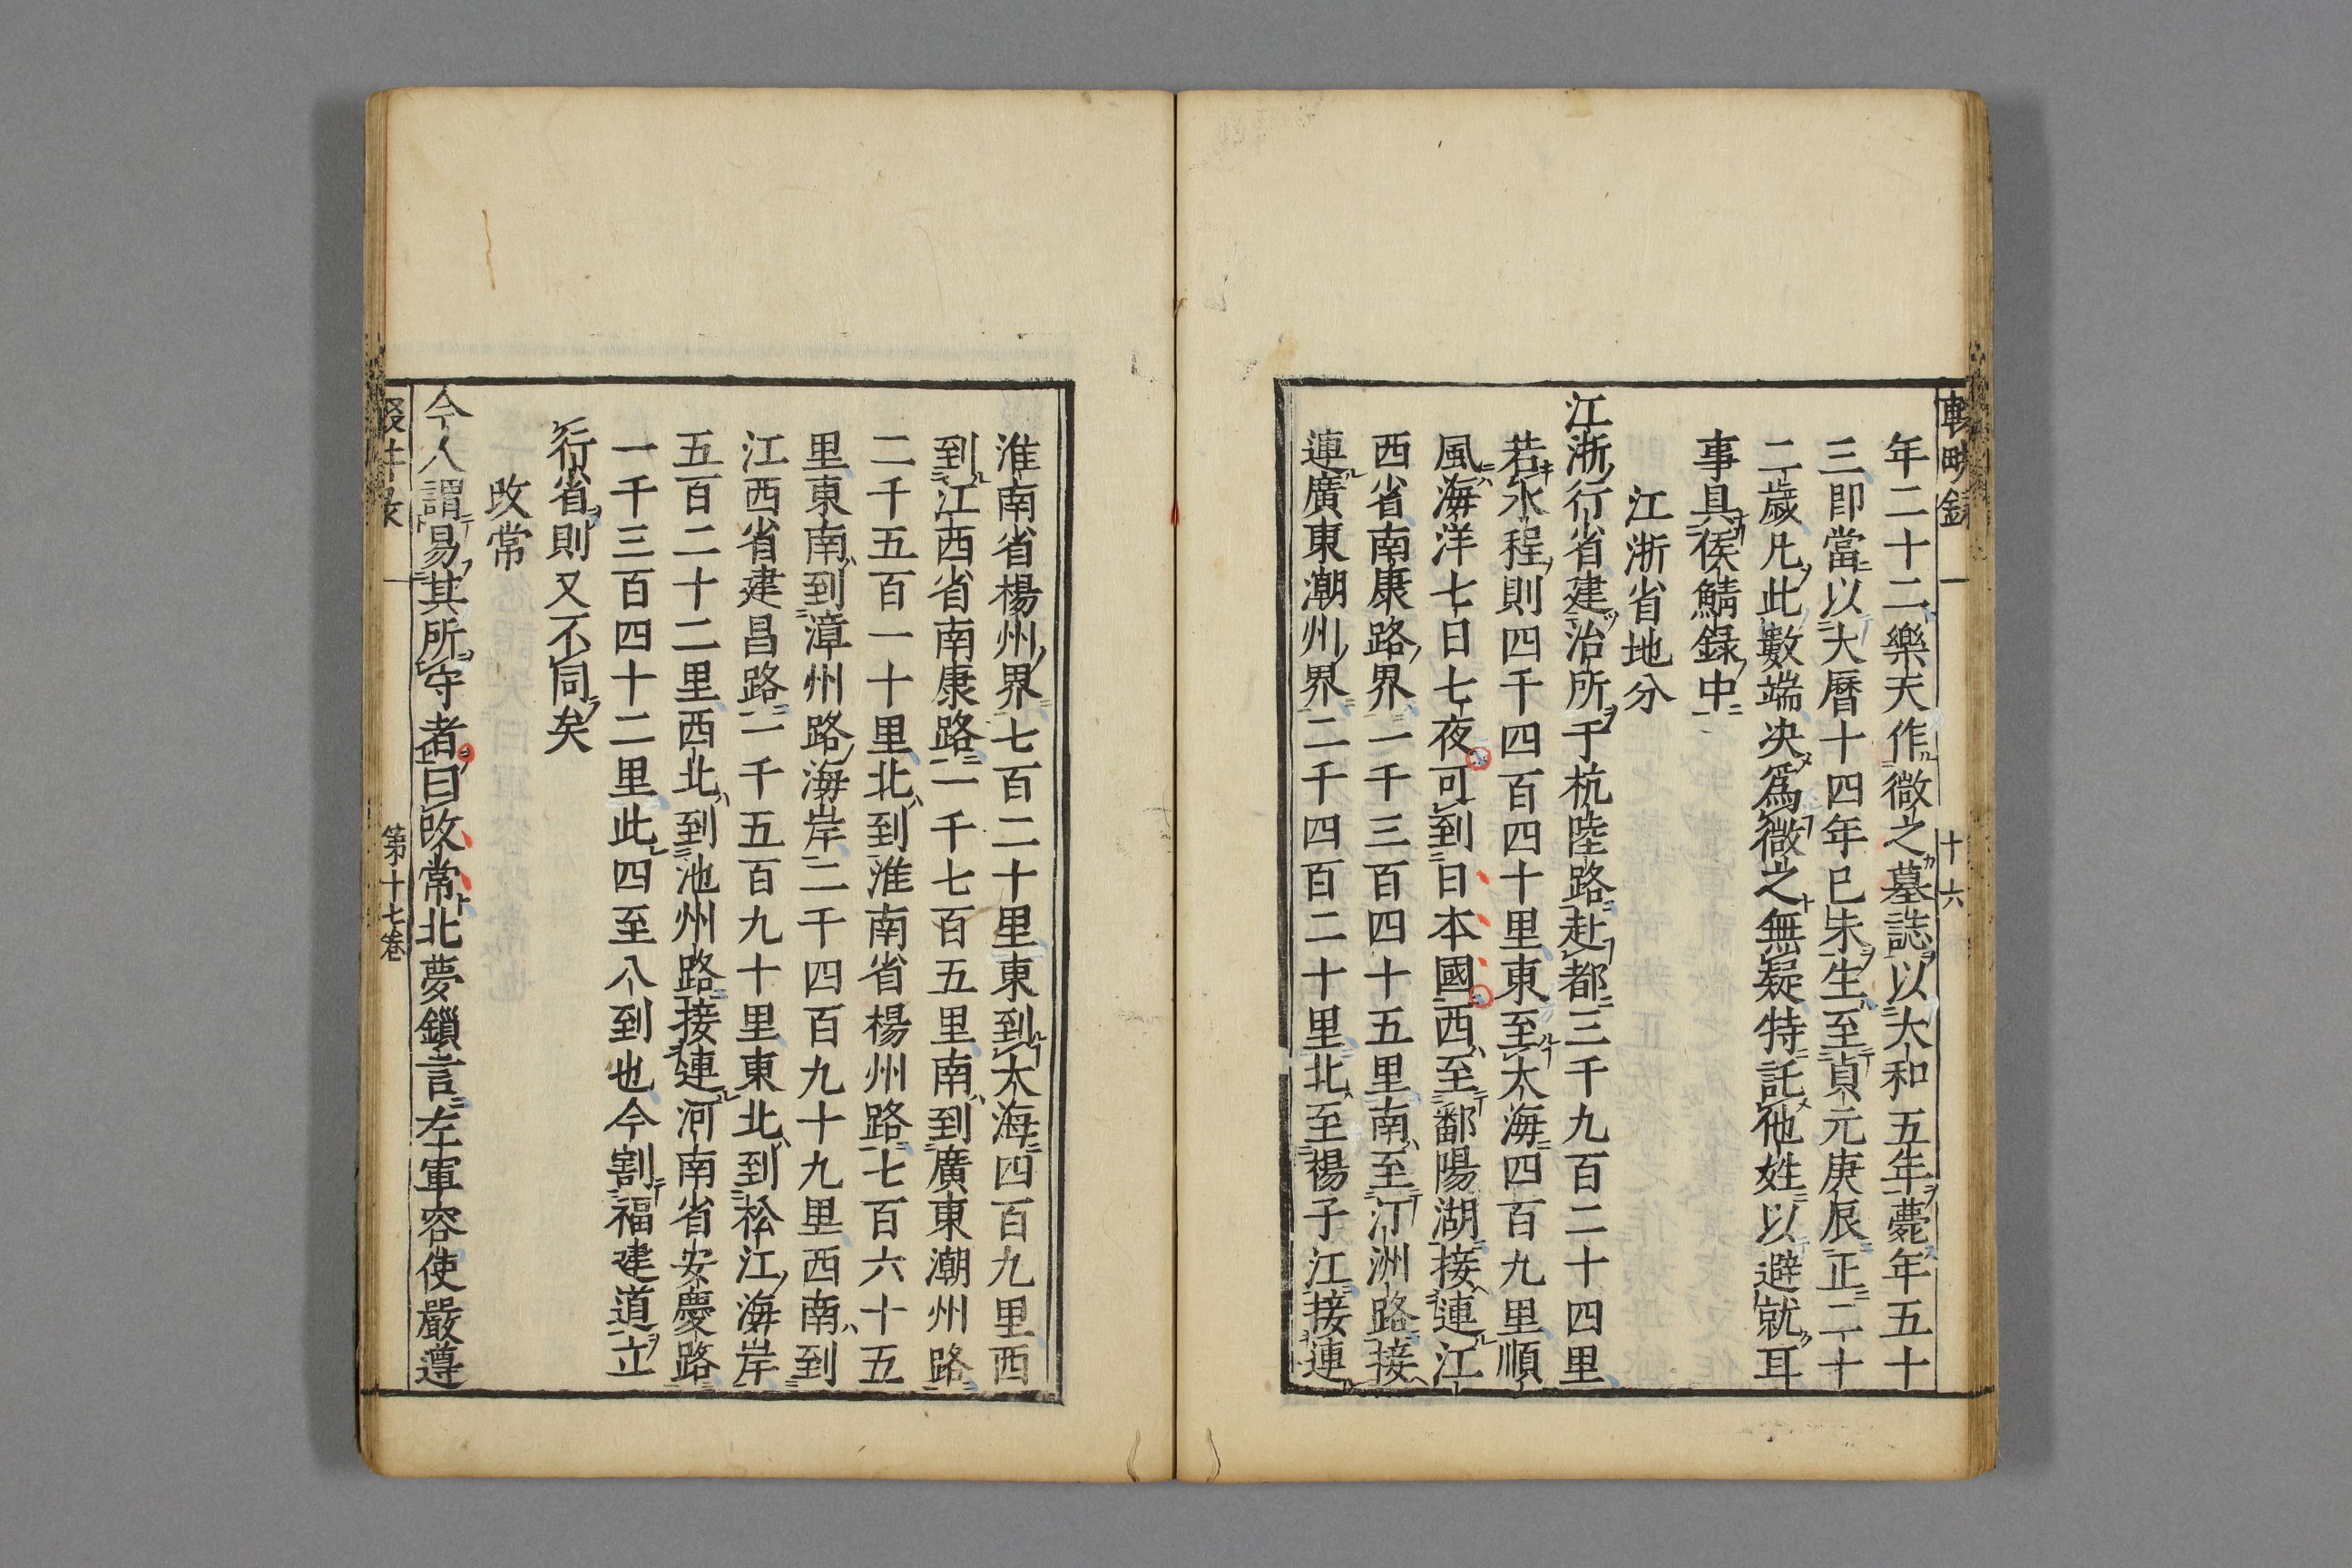 年二十二樂天作微之墓誌以太和五年薨年五十
三即當以大曆十四年已未生至貞元庚辰正二十
二歲凡此數端决爲微之無疑特託他姓以避就耳
事具侯鯖錄中
江浙省地分
江浙行省建治所于杭陸路赴都三千九百二十四里
若水程則四千四百四十里東至大海四百九里順
風海洋七日七夜可到日本國西至鄱陽湖接連江
西省南康路界一千三百四十五里南至汀洲路接
連廣東潮州界二千四百二十里北至楊子江接連
淮南省楊州界七百二十里東到大海四百九里西
到江西省南康路一千七百五里南到廣東潮州路
二千五百一十里北到淮南省楊州路七百六十五
里東南到漳州路海岸二千四百九十九里西南到
江西省建昌路一千五百九十里東北到松江海岸
五百二十二里西北到池州路接連河南省安慶路
一千三百四十二里此四至八到也今割福建道立
行省則又不同矣
改常
今人謂易其所守者曰改常北夢鎖言左軍容使嚴遵
第十七卷
十六